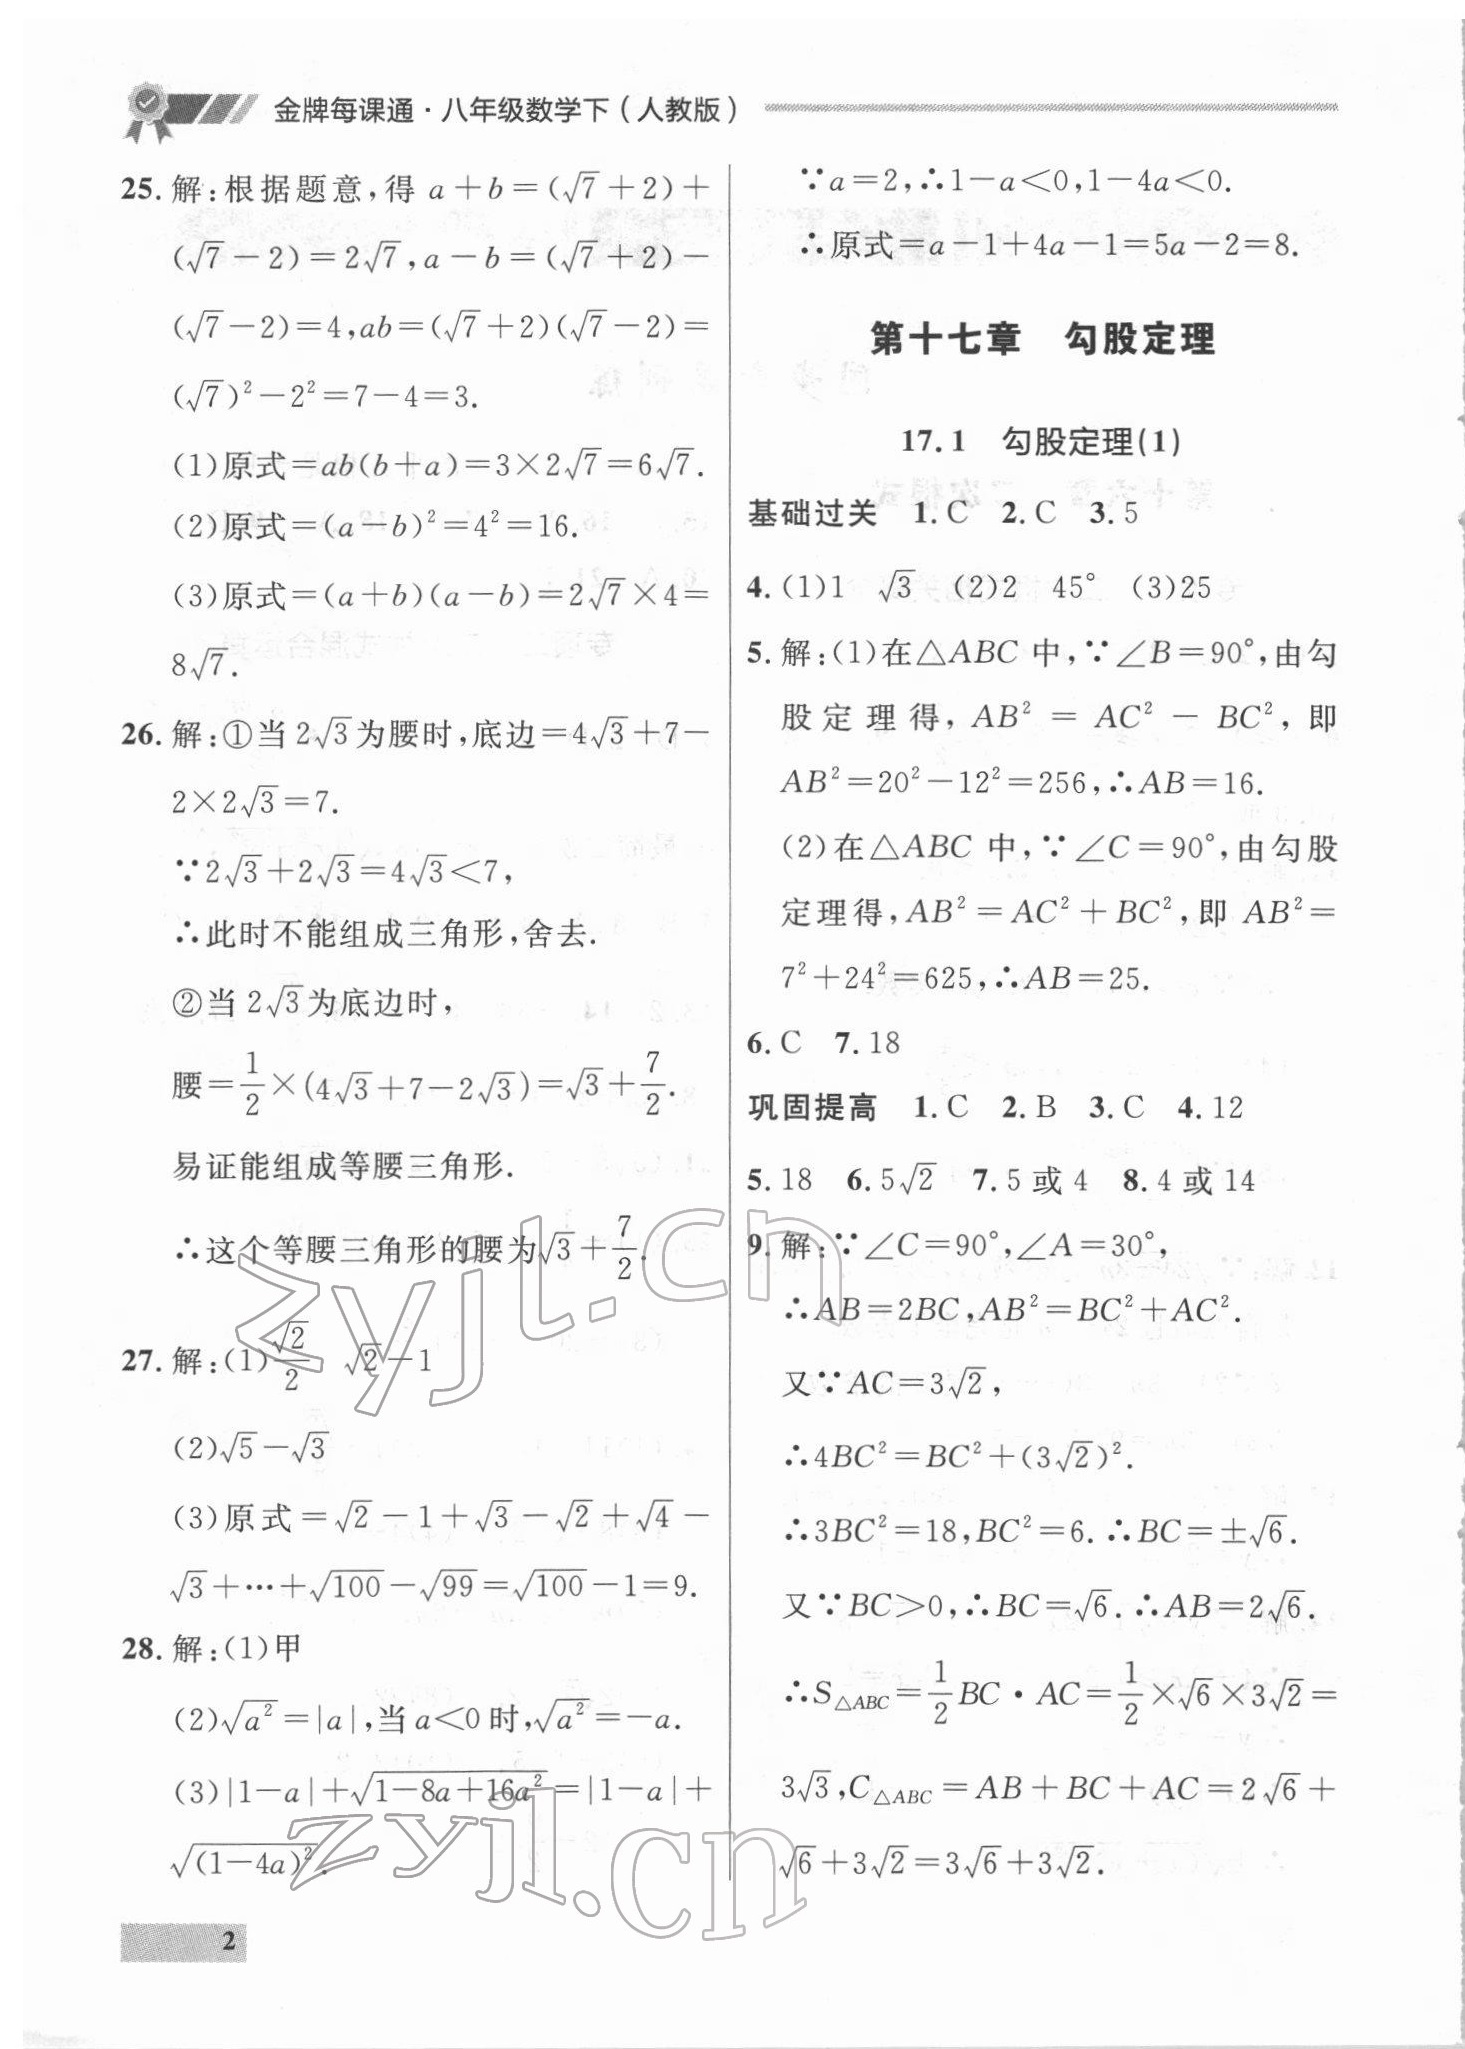 金牌每课通·八年级数学下（人教版）
25. 解：根据题意，得 a＋b＝(√7＋2)＋
(√7－2)＝2√7，a－b＝(√7＋2)－
(√7－2)＝4，ab＝(√7＋2)(√7－2)＝
(√7)²－2²＝7－4＝3.
(1)原式＝ab(b＋a)＝3×2√7＝6√7.
(2)原式＝(a－b)²＝4²＝16.
(3)原式＝(a＋b)(a－b)＝2√7×4＝
8√7.
26. 解：①当 2√3为腰时，底边＝4√3＋7－
2×2√3＝7.
∵2√3＋2√3＝4√3＜7，
∴此时不能组成三角形，舍去.
②当 2√3为底边时，
腰＝1/2×(4√3＋7－2√3)＝√3＋7/2.
易证能组成等腰三角形.
∴这个等腰三角形的腰为√3＋7/2.
27. 解：(1)√2/2　√2－1
(2)√5－√3
(3)原式＝√2－1＋√3－√2＋√4－
√3＋…＋√100－√99＝√100－1＝9.
28. 解：(1)甲
(2)√(a²)＝|a|，当 a＜0 时，√(a²)＝－a.
(3)|1－a|＋√(1－8a＋16a²)＝|1－a|＋
√((1－4a)²).
∵a＝2，∴1－a＜0，1－4a＜0.
∴原式＝a－1＋4a－1＝5a－2＝8.
第十七章　勾股定理
17.1　勾股定理(1)
基础过关　1. C　2. C　3. 5
4. (1)1　√3　(2)2　45°　(3)25
5. 解：(1)在△ABC 中，∵∠B＝90°，由勾
股定理得，AB²＝AC²－BC²，即
AB²＝20²－12²＝256，∴AB＝16.
(2)在△ABC 中，∵∠C＝90°，由勾股
定理得，AB²＝AC²＋BC²，即 AB²＝
7²＋24²＝625，∴AB＝25.
6. C　7. 18
巩固提高　1. C　2. B　3. C　4. 12
5. 18　6. 5√2　7. 5 或 4　8. 4 或 14
9. 解：∵∠C＝90°，∠A＝30°，
∴AB＝2BC，AB²＝BC²＋AC².
又∵AC＝3√2，
∴4BC²＝BC²＋(3√2)².
∴3BC²＝18，BC²＝6. ∴BC＝±√6.
又∵BC＞0，∴BC＝√6. ∴AB＝2√6.
∴S△ABC＝1/2BC·AC＝1/2×√6×3√2＝
3√3，C△ABC＝AB＋BC＋AC＝2√6＋
√6＋3√2＝3√6＋3√2.
2
zyjl.cn
zyjl.cn